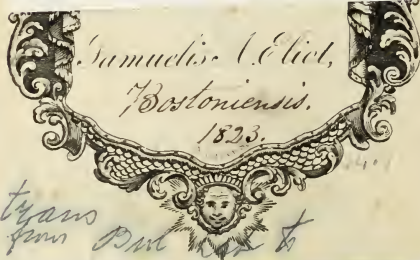 Samuelis A. Eliot,
Bostoniensis.
1823.
trans
from to